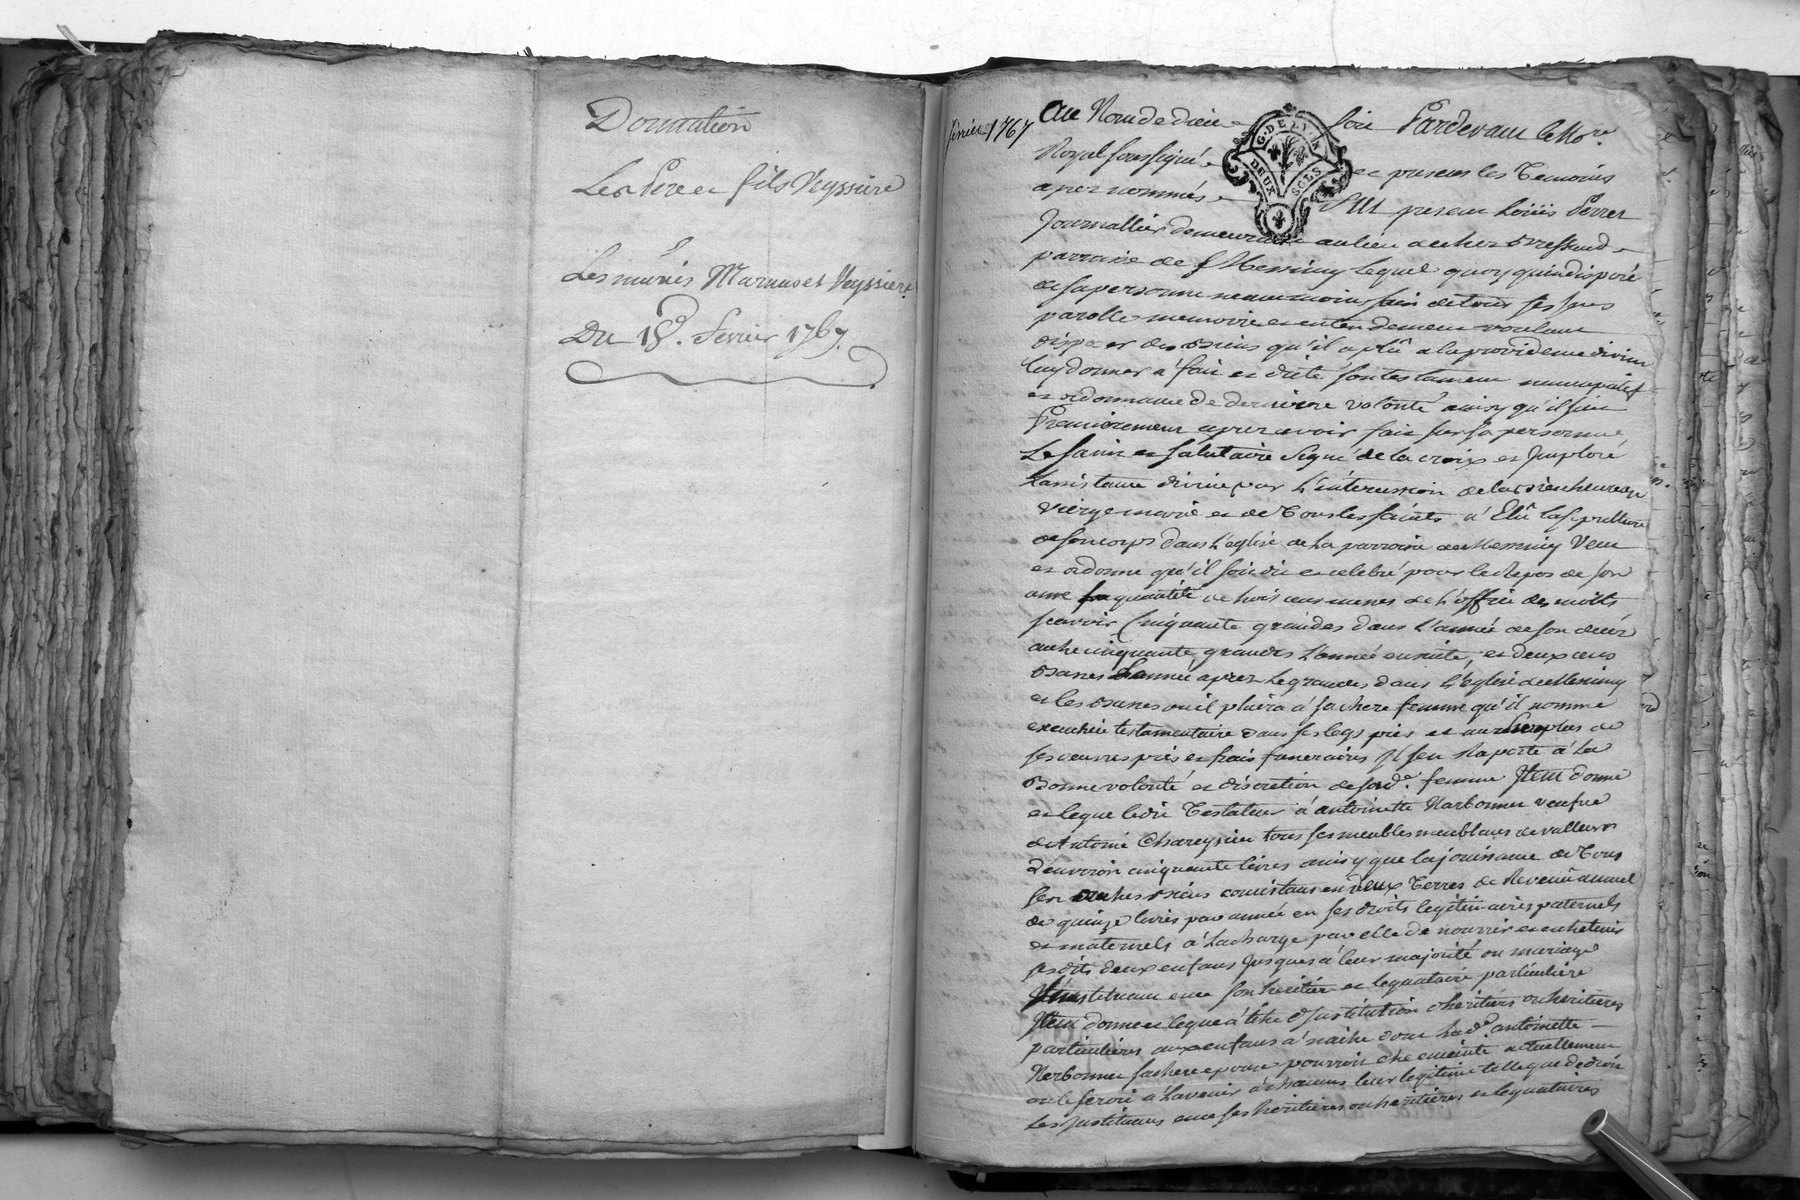 Donnation
Les Pere et fils Veyssiere
Les mariés Marnas et Veyssiere
Du 18e. fevrier 1767
fevrier 1767
Au Nom de dieu soit Pardevant le No.re
G. DE LYON
DEUX SOLS
Royal soussigné et presens les Temoins
apres nommés fut present Loüis Perret
Journallier demeurant au lieu de chez
parroisse de Messimy Lequel quoy qu'indisposé
de sa personne neantmoins sain de tous ses sens
parolle memoire et entendement voulant
disposer des biens qu'il a plû a la providence divine
luy donner á fait et dicté son testament nuncupatif
et ordonnance de derniere volonté ainsy qu'il suit
Premierement apres avoir fait sur sa personne
Le saint et salutaire signe de la croix et Imploré
Lassistance divine par L'intercession de la bienheureuse
vierge marie et de Tous les saints á Elû la sepulture
de son corps dans L'eglise de La parroisse de Messimy Veut
et ordonne qu'il soit dit et celebré pour le Repos de son
ame la quantité de trois cens messes de L'office des morts
scavoir Cinquante grandes dans L'année de son decés
autre cinquante grandes L'année ensuite, et deux cens
basses L'année apres Le grandes dans L'Eglise de Messimy
et les basses ou il plaira á sa chere femme qu'il nomme
executrice testamentaire dans ses legs pies et au surplus de
ses oeuvres pies et frais funeraires Il s'en Raporte á La
Bonne volonté et discretion de sad.e femme Item donne
et legue ledit Testateur á antoinette Narbonnet veufve
de Antoine Chareysieu tous ses meubles meublans de valleur
d'environ cinquante livres ainsy que la jouissance de Tous
ses autres biens consistans en deux Terres de Revenu annuel
de quinze livres par année en ses droits legitimaires paternels
et maternels á La charge par elle de nourrir et entretenir
ses dits deux enfans Jusques á leur majorité ou mariage
L'instituant en ce son heritiere et legataire particuliere
Item donne et legue á titre d'Institution d'heritiers ou heritieres
particulieres aux enfans á naitre dont lad.e antoinette
Narbonnet sa chere epouse pourroit etre enceinte actuellement
ou le seroit á L'avenir á chacuns leur legitime telle que de droit
Les Instituans en ce ses heritiers ou heritieres et legataires